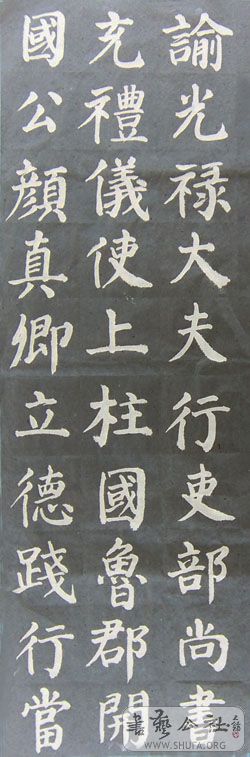 諭光禄大夫行吏部尚書
充禮儀使上柱國魯郡開
國公顏真卿立德踐行當
書藝公社
WWW.SHUFA.ORG